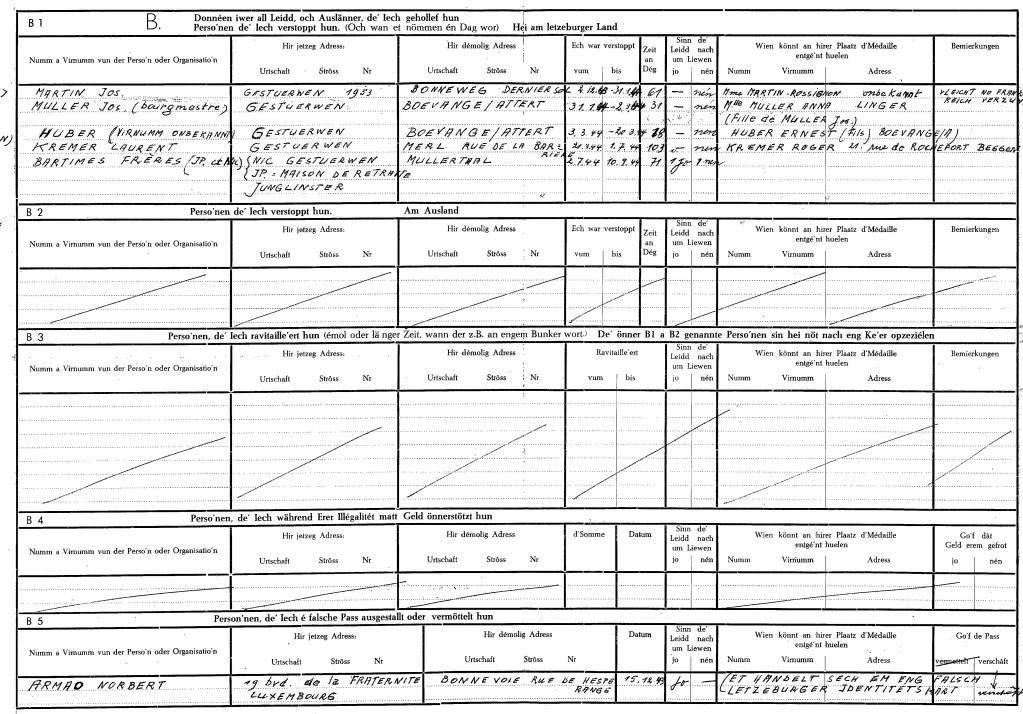 B 1 B. Donnéen iwer all Leidd, och Auslänner, de' Iech gehollef hun
Perso'nen de' Iech verstoppt hun. (Och wan et nömmen én Dag wor) Hei am letzeburger Land
Numm a Virnumm vun der Perso'n oder Organisatio'n
Hir jetzeg Adress:
Urtschaft Ströss Nr
Hir démolig Adress
Urtschaft Ströss Nr
Ech war verstoppt
vum bis
Zeit an Dég
Sinn de' Leidd nach um Liewen
jo nén
Wien könnt an hirer Plaatz d'Médaille entgé'nt huelen
Numm Virnumm Adress
Bemierkungen
MARTIN JOS. GESTUERWEN 1953 BONNEWEG DERNIER SOL 61 — nén Mme MARTIN-ROSSIGNON onbekannt
MULLER JOS. (bourgmestre) GESTUERWEN BOEVANGE/ATTERT 31 — nén Mlle MULLER ANNA LINGER
(Fille de MULLER JOS.)
HUBER (VIRNUMM ONBEKANNT) GESTUERWEN BOEVANGE/ATTERT 3.3.44 -20.3.44 18 — nen HUBER ERNEST (fils) BOEVANGE/A)
KREMER LAURENT GESTUERWEN MERL RUE DE LA BARRIÈRE 21.3.44 1.7.44 103 — nen KREMER ROGER rue de ROCHEFORT BEGGEN
BARTIMES FRÈRES (JP. et Nic) (NIC GESTUERWEN MULLERTHAL 2.7.44 10.9.44 71 1 jo 1 nen
(JP. = MAISON DE RETRAITE
JUNGLINSTER
B 2 Perso'nen de' Iech verstoppt hun. Am Ausland
Numm a Virnumm vun der Perso'n oder Organisatio'n
Hir jetzeg Adress:
Urtschaft Ströss Nr
Hir démolig Adress
Urtschaft Ströss Nr
Ech war verstoppt
vum bis
Zeit an Dég
Sinn de' Leidd nach um Liewen
jo nén
Wien könnt an hirer Plaatz d'Médaille entgé'nt huelen
Numm Virnumm Adress
Bemierkungen
B 3 Perso'nen, de' Iech ravitaille'ert hun (émol oder länger Zeit, wann der z.B. an engem Bunker wort.) De' önner B1 a B2 genannte Perso'nen sin hei nöt nach eng Ke'er opzeziélen
Numm a Virnumm vun der Perso'n oder Organisatio'n
Hir jetzeg Adress:
Urtschaft Ströss Nr
Hir démolig Adress
Urtschaft Ströss Nr
Ravitaille'ert
vum bis
Sinn de' Leidd nach um Liewen
jo nén
Wien könnt an hirer Plaatz d'Médaille entgé'nt huelen
Numm Virnumm Adress
Bemierkungen
B 4 Perso'nen, de' Iech während Erer Illégalitét matt Geld önnerstötzt hun
Numm a Virnumm vun der Perso'n oder Organisatio'n
Hir jetzeg Adress:
Urtschaft Ströss Nr
Hir démolig Adress
Urtschaft Ströss Nr
d'Somme
Datum
Sinn de' Leidd nach um Liewen
jo nén
Wien könnt an hirer Plaatz d'Médaille entgé'nt huelen
Numm Virnumm Adress
Go'f dât Geld erem gefrot
jo nén
B 5 Person'nen, de' Iech é falsche Pass ausgestallt oder vermöttelt hun
Numm a Virnumm vun der Perso'n oder Organisatio'n
Hir jetzeg Adress:
Urtschaft Ströss Nr
Hir démolig Adress
Urtschaft Ströss Nr
Datum
Sinn de' Leidd nach um Liewen
jo nén
Wien könnt an hirer Plaatz d'Médaille entgé'nt huelen
Numm Virnumm Adress
Go'f de Pass
vermöttelt verschäft
ARMAO NORBERT 19 bvd. de la FRATERNITE BONNEVOIE RUE DE HESPERANGE 15.12.43 jo — (ET HANDELT SECH EM ENG FALSCH
LUXEMBOURG LETZEBURGER IDENTITETSKART verschäft